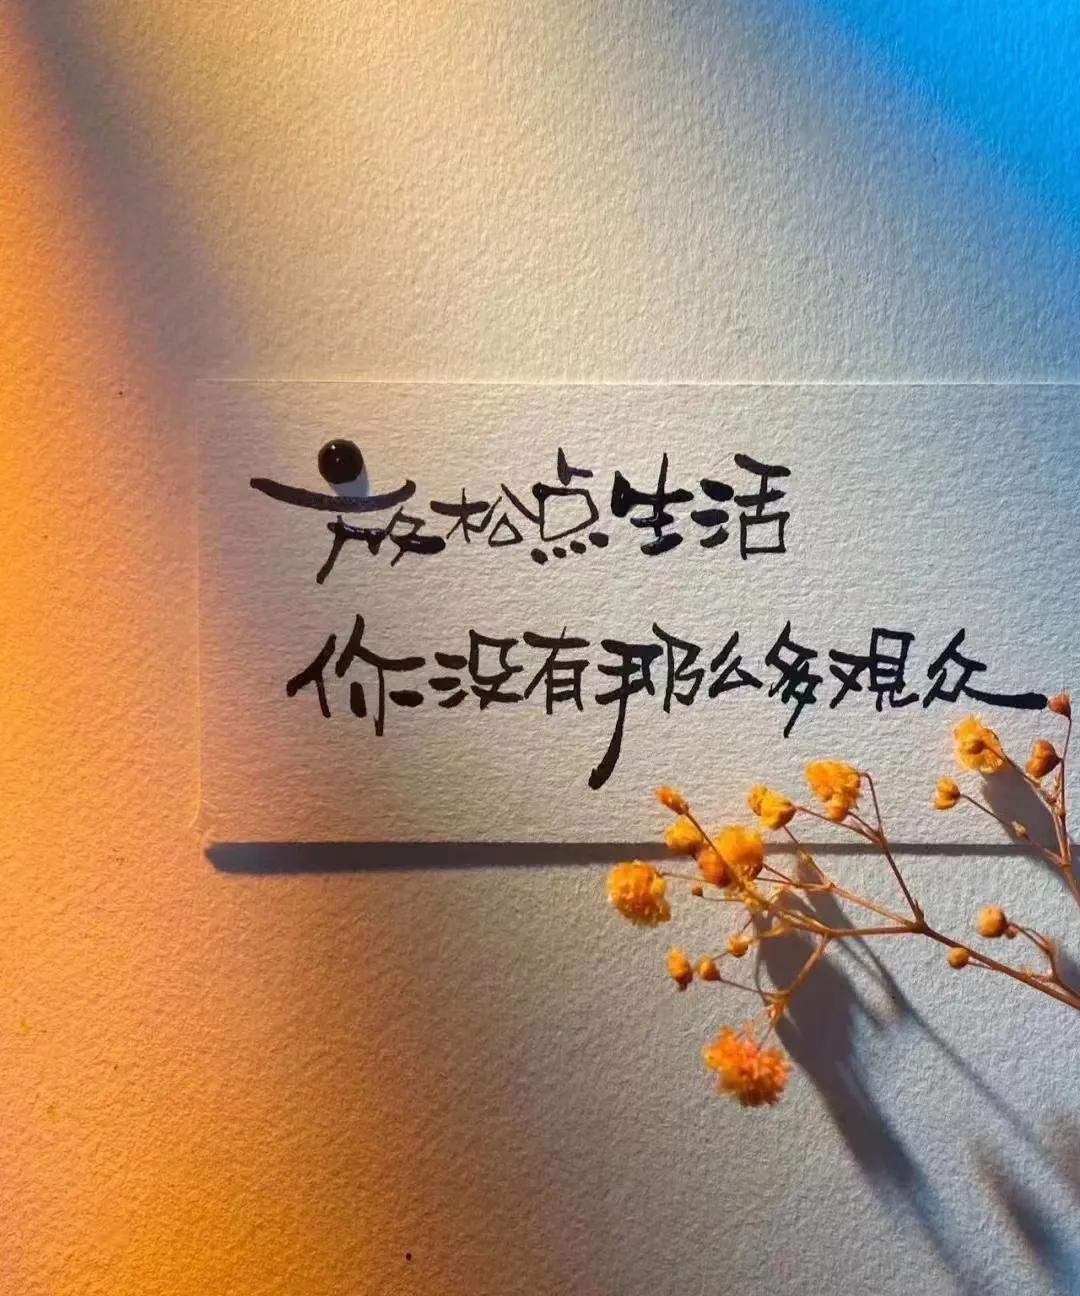 放松点生活
你没有那么多观众